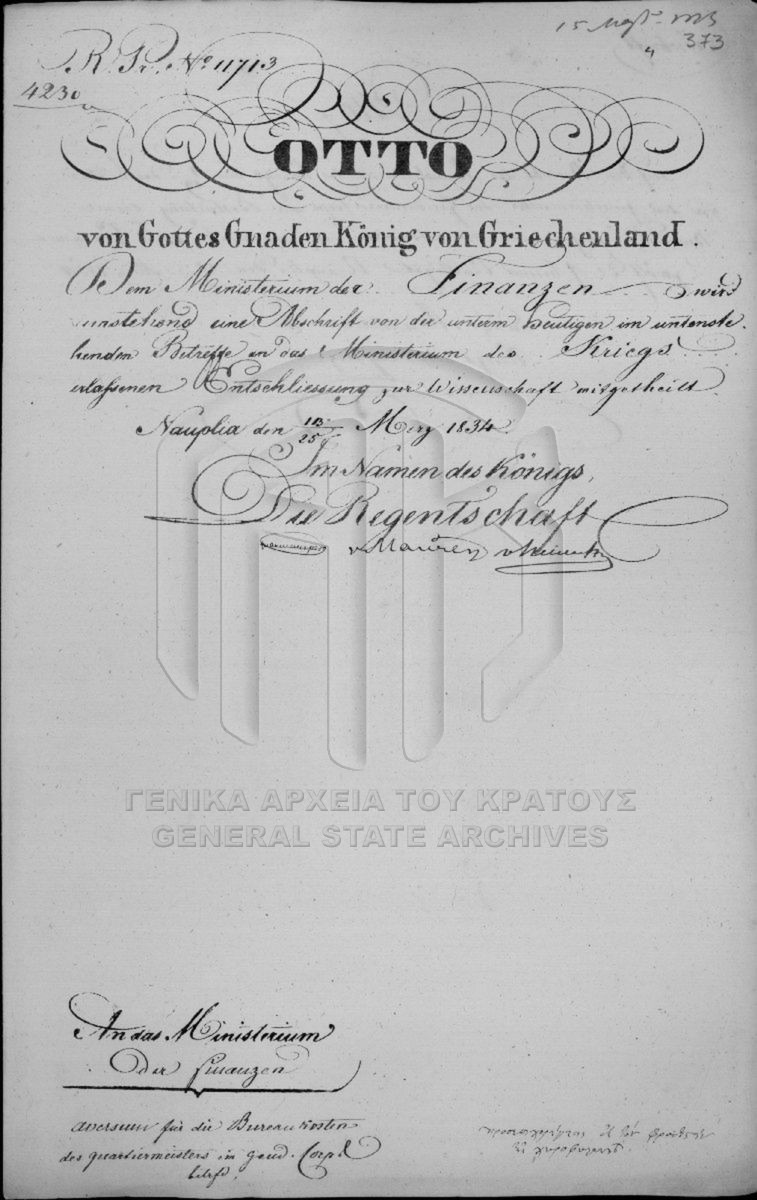 373
R. Pr. No 11713
4230
OTTO
von Gottes Gnaden König von Griechenland.
Dem Ministerium der Finanzen wird
umstehend eine Abschrift von der unterm heutigen im untenste-
henden Betreffe an das Ministerium des Kriegs
erlassenen Entschliessung zur Wissenschaft mitgetheilt.
Nauplia den 13/25 März 1834.
Im Namen des Königs,
Die Regentschaft
v Maurer
ΓΕΝΙΚΑ ΑΡΧΕΙΑ ΤΟΥ ΚΡΑΤΟΥΣ
GENERAL STATE ARCHIVES
An das Ministerium
der Finanzen
aversum für die Bureaukosten
des quartiermeisters im gend. Corps
betrfd.